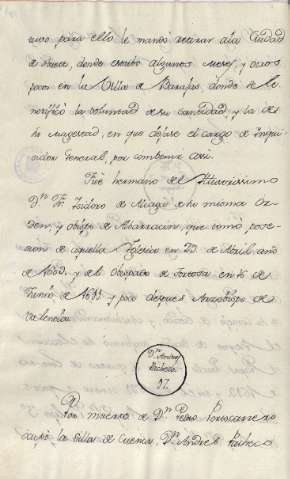 uvo para ello le mando retirar a la Ciudad
de donde estubo algunos Meses, y otros
pocos en la Villa de Barajas, donde se le
notificó la voluntad de su Santidad, y la de
su Magestad, en que dejase el cargo de Inqui-
sidor General, por combenir así.
Fué hermano del Ilustrissimo
Dⁿ. Fr. Isidoro de Aliaga de la misma Or-
den, y obispo de Albarracin, que tomó pose-
sion de aquella Iglesia en 23 de Abril año
de y del Obispado de Tortosa en 16 de
Junio de y por despues Arzobispo de
Valencia.
Dⁿ. Andres
Pacheco
17.
Por muerte de Dⁿ. Pedro Portocarrero
ocupó la Silla de Cuenca, Dⁿ. Andres Pacheco